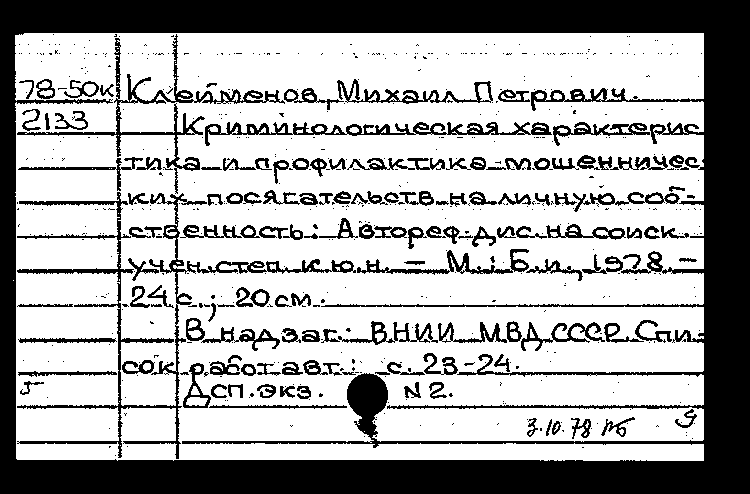 78-50к Клейменов, Михаил Петрович.
2133 Криминологическая характерис
тика и профилактика мошенничес
ких посягательств на личную соб-
ственность: Автореф. дис. на соиск.
учен. степ. к.ю.н. – М.: Б.и., 1978. –
24 с.; 20 см.
В надзаг.: ВНИИ МВД СССР. Спи-
сок работ авт.: с. 23-24.
Дсп. экз. N 2.
3.10.78